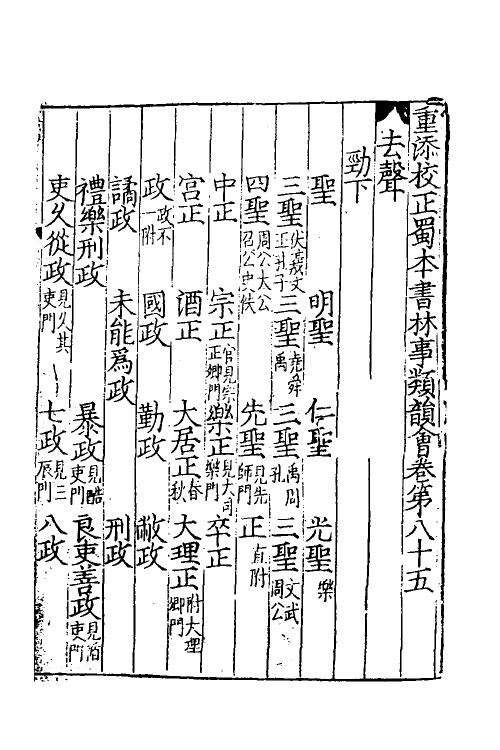 重添校正蜀本書林事類韻會卷第八十五
去聲
勁下
聖　明聖　仁聖　光聖樂
三聖伏羲文王孔子　三聖堯舜禹　三聖禹周孔　三聖文武周公
四聖周公太公召公史佚　先聖見先師門　正直附
中正　宗正官見宗正卿門　樂正見大司樂門　卒正
宮正　酒正　大居正春秋　大理正附大理卿門
政政不一附　國政　勤政　敝政
譎政　未能爲政　刑政
禮樂刑政　暴政見酷吏門　良吏善政見循吏門
吏久從政見久其吏門　七政見三辰門　八政